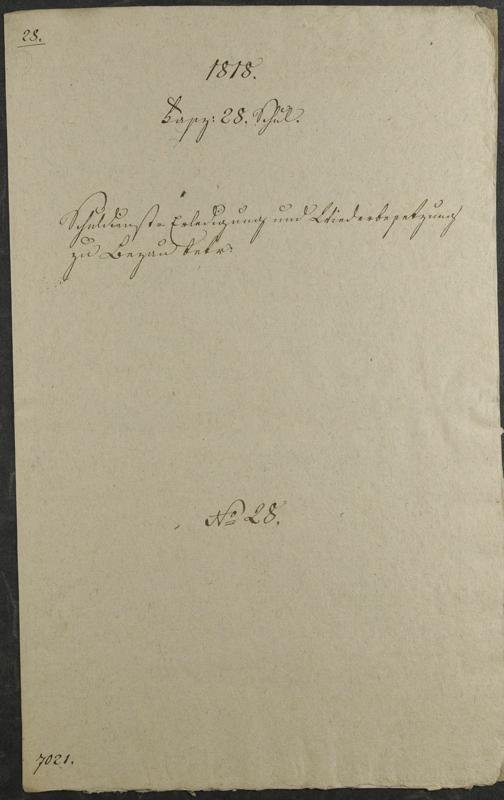 28.
1818.
Fasz: 28. Schul.
Schuldienst-Erledigung und Wiederbesetzung
zu Bezau betr:
No 28.
7021.